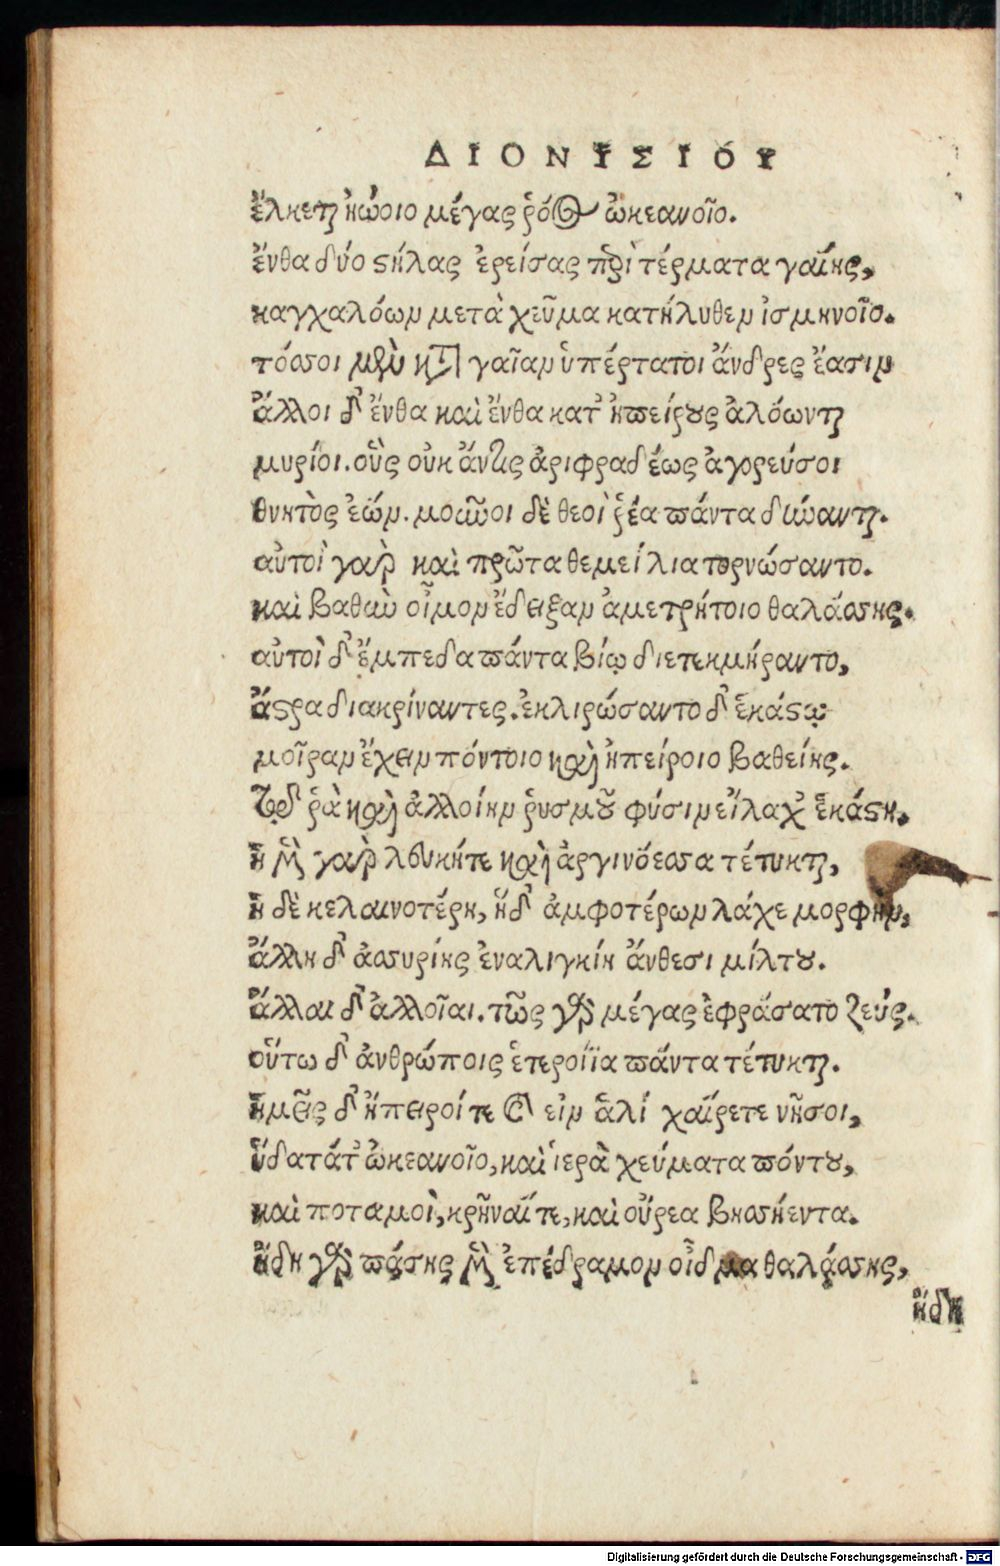 ΔΙΟΝΥΣΙΟΥ
ἕλκεται ἠῴοιο μέγας ῥόος ὠκεανοῖο.
ἔνθα δύο στήλας ἐρείσας περὶ τέρματα γαίης,
καγχαλόων μετὰ χεῦμα κατήλυθεν ἰσμηνοῖο.
τόσσοι μὲν κατὰ γαῖαν ὑπέρτατοι ἄνδρες ἔασιν
ἄλλοι δ' ἔνθα καὶ ἔνθα κατ' ἠπείρους ἀλόωνται
μυρίοι. οὓς οὐκ ἄν τις ἀριφραδέως ἀγορεύσοι
θνητὸς ἐών. μοῦνοι δὲ θεοὶ ῥέα πάντα δύνανται.
αὐτοὶ γὰρ καὶ πρῶτα θεμείλια τορνώσαντο.
καὶ βαθὺν οἶμον ἔδειξαν ἀμετρήτοιο θαλάσσης.
αὐτοὶ δ' ἔμπεδα πάντα βίῳ διετεκμήραντο,
ἄστρα διακρίναντες. ἐκλιρώσαντο δ' ἑκάστῳ
μοῖραν ἔχειν πόντοιο καὶ ἠπείροιο βαθείης.
τῷ δ' ῥὰ καὶ ἀλλοίην ῥυσμοῦ φύσιν εἴλαχ' ἑκάστη.
ἣ μὲν γὰρ λευκή τε καὶ ἀργινόεσσα τέτυκται,
ἣ δὲ κελαινοτέρη, ἣ δ' ἀμφοτέρων λάχε μορφήν,
ἄλλη δ' ἀσσυρίης ἐναλιγκίη ἄνθεσι μίλτου.
ἄλλαι δ' ἀλλοῖαι. τῶς γὰρ μέγας ἐφράσατο ζεύς.
οὕτω δ' ἀνθρώποις ἑτεροίϊα πάντα τέτυκται.
ἡμεῖς δ' ἤπειροί τε καὶ εἰν ἁλὶ χαίρετε νῆσοι,
ὕδατά τ' ὠκεανοῖο, καὶ ἱερὰ χεύματα πόντου,
καὶ ποταμοὶ, κρῆναί τε, καὶ οὔρεα βησσήεντα.
ἤδη γὰρ πάσης μὲν ἐπέδραμον οἶδμα θαλάσσης,
ἤδη
Digitalisierung gefördert durch die Deutsche Forschungsgemeinschaft - DFG